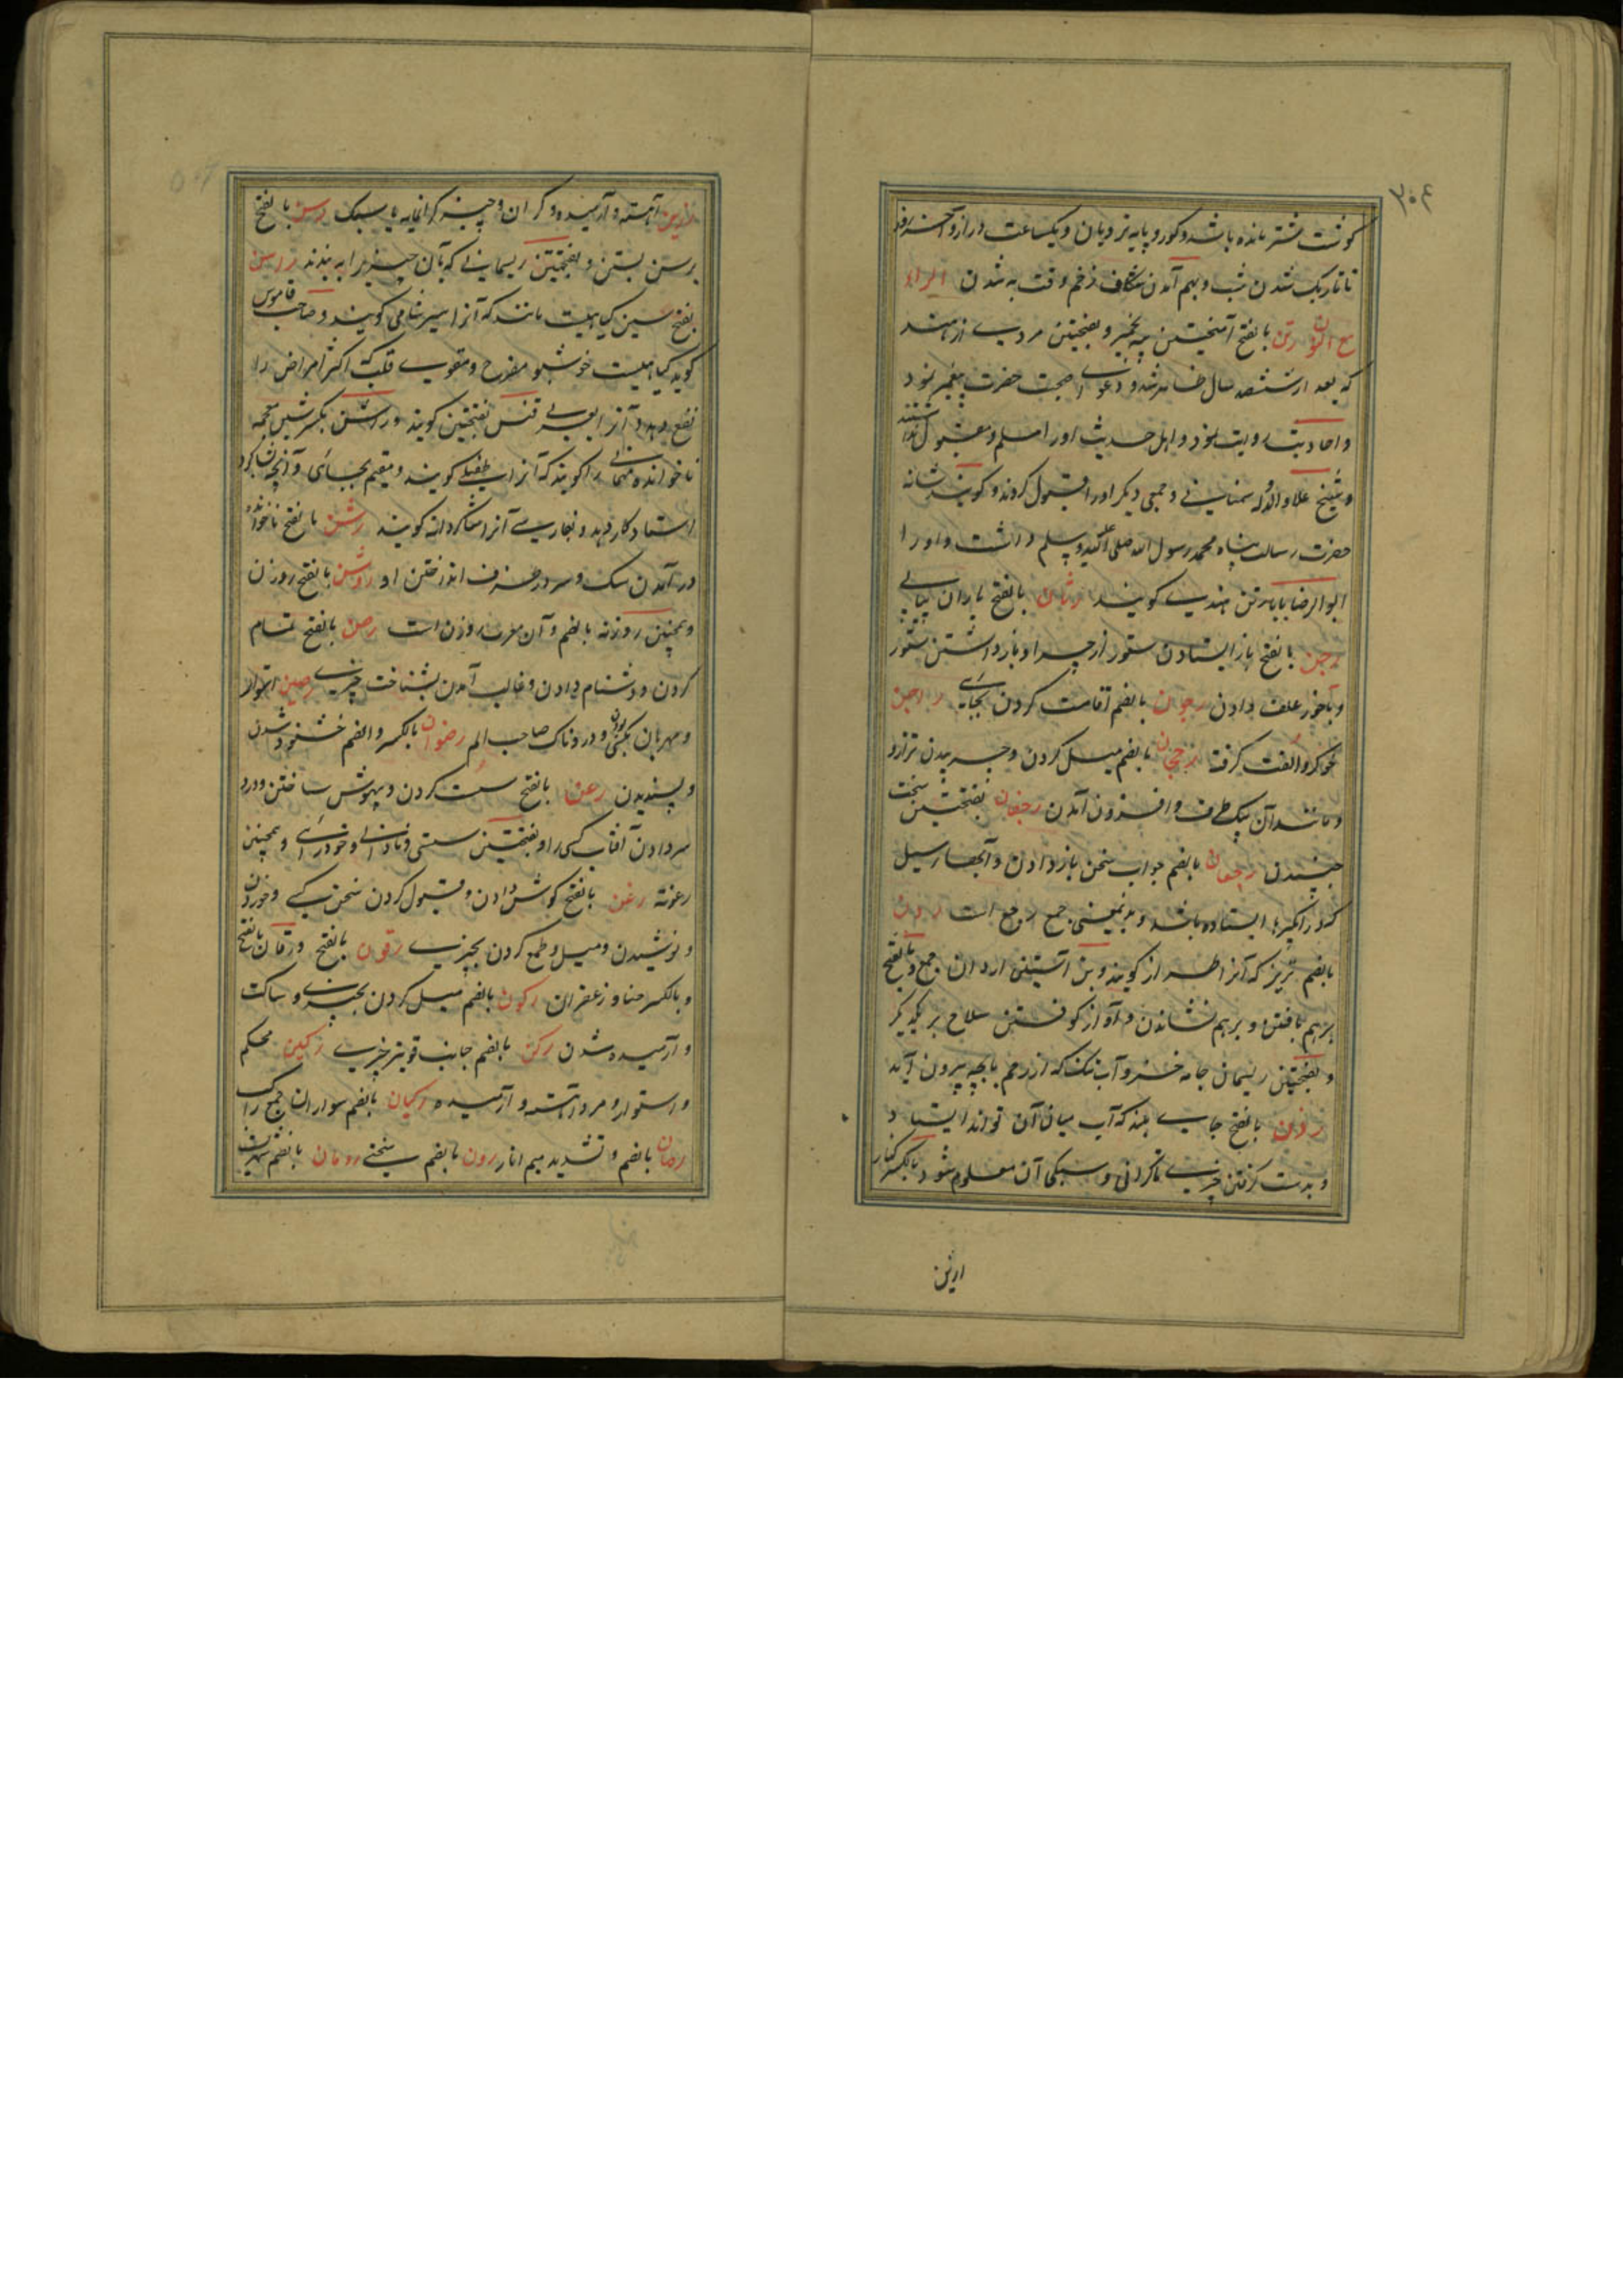 ۳۰۶
گوشت شتر مانده باشد و گور و پایه نردبان و یکساعت دراز و آخر روز
تا تاریک شدن شب و بهم آمدن شکاف زخم وقت به شدن الراء
مع النون رتن بالفتح آمیختن پیه بخمیر و بفتحتین مردی از هند
که بعد از ششصد سال ظاهر شد و دعوای صحبت حضرت پیغمبر نمود
و احادیث روایت نمود و اهل حدیث او را مسلم و مقبول نداشتند
و شیخ علاء الدوله سمنانی و جمعی دیگر او را قبول کردند و گویند شانه
حضرت رسالت پناه محمد رسول الله صلی الله علیه وسلم داشت و او را
ابو الرضا بابا رتن هندی گویند رثان بالفتح باران پیاپی
رجن بالفتح باز ایستادن ستور از چرا و باز داشتن ستور
و بآخور علف دادن رجون بالضم اقامت کردن بجای راجن
خو کر و الفت گرفته رجحان بالضم میل کردن و چربیدن ترازو
و مانند آن بیک طرف و افزون آمدن رجفان بفتحتین سخت
جنبیدن رجعان بالضم جواب سخن باز دادن و آنجا سیل
کردن آبگیرها ایستاده باشد و بدینمعنی جمع رجع است ردن
بالضم تریز که آنرا طراز گویند و بن آستین اردان جمع و بالفتح
برهم بافتن و برهم نشاندن و آواز کوفتن سلاح بر یکدیگر
و بفتحتین ریسمان جامه خز و آب تنک که از رحم با بچه بیرون آید
رزن بالفتح جای بلند که آب میان آن تواند ایستاد
و بدست گرفتن چیزی تا گرانی و سبکی آن معلوم شود و بالکسر کنار
رزین آهسته و آرمیده و گران و چیز گرانمایه یا سبک رسن بالفتح
برسن بستن و بفتحتین ریسمانی که بآن چیزی را به بندند راسن
بفتح سین گیاهیست مانند که آنرا سیر شامی گویند و صاحب قاموس
گوید گیاهیست خوشبو مفرح و مقوی قلب که اکثر امراض را
نفع دهد و آنرا بعربی قنس بفتحتین گویند و راشن بکسر شین معجمه
ناخوانده مهمانی را گویند که آنرا طفیلی گویند و مقیم بجای و آنچه شاگرد
استاد کار دهد و بفارسی آنرا شاگردانه گویند رشن بالفتح ناخوانده
در آمدن سگ و سر در ظرف انداختن او روشن بالفتح روزن
و همچنین روزنه بالضم و آن معرب روزن است رصن بالفتح تمام
کردن و دشنام دادن و غالب آمدن بشناخت چیزی رصین استوار
و مهربان بکسی بودن و دردناک صاحب الم رضوان بالکسر و الضم خشنود شدن
و پسندیدن رعن بالفتح سست کردن و بیهوش ساختن و درد
سر دادن آفتاب کسی را و بفتحتین سستی و نادانی و خودرائی و همچنین
رعونة رغن بالفتح گوش دادن و قبول کردن سخن کسی و خوردن
و نوشیدن و میل و طمع کردن بچیزی رقون بالفتح و رقان بالفتح
و بالکسر حنا و زعفران رکون بالضم میل کردن بچیزی و ساکت
و آرمیده شدن رکن بالضم جانب قویتر چیزی رکین محکم
و استوار و مرد آهسته و آرمیده رکبان بالضم سواران جمع راکب
رمان بالضم و تشدید میم انار رون بالضم سختی رومان بالضم شهریست
ارزن